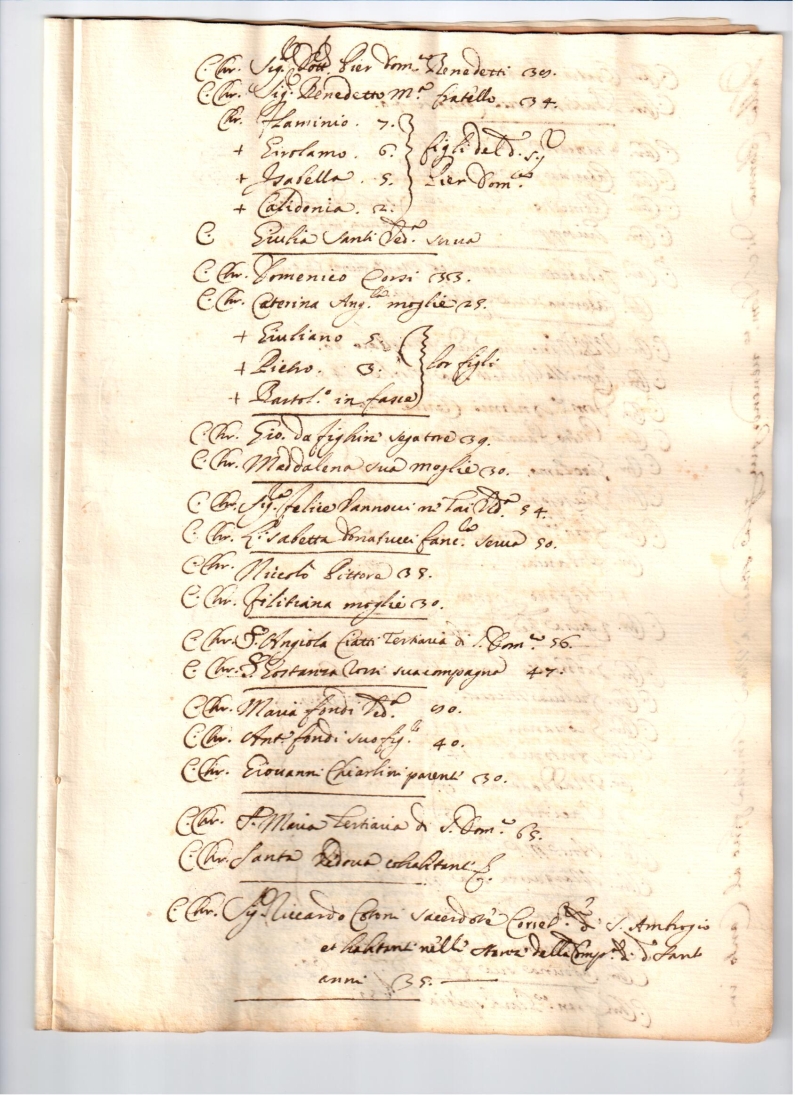 C. Chr. Sig.r Dott. Pier Dom.co Benedetti 39.
C. Chr. Sig. Benedetto M.a fratello. 34.
Chr. Flaminio. 7.
+ Girolamo. 6. figli del d.o Sig
+ Isabella. 5. Pier Dom.co
+ Calidonia. 2.
C. Giulia Santi Ved.a serva
C. Chr. Domenico Corsi 33.
C. Chr. Caterina Ang.la moglie 25.
+ Giuliano 5.
+ Pietro. 3. lor figli
+ Bartol.o in fasce
C. Chr. Gio. da fighin segatore 39.
C. Chr. Maddalena sua moglie 30.
C. Chr. Sig.ra Felice Vannocci Ved.a 54.
C. Chr. Lisabetta Donatucci fanc.la serva 50.
C. Chr. Niccolò Pittore 35.
C. Chr. Filitiana moglie 30.
C. Chr. S. Angiola Ciatti Tertiaria di S. Dom.co 56.
C. Chr. S. Costanza sua compagna 47.
C. Chr. Maria fondi Ved.a 90.
C. Chr. Ant.o fondi suo fig.lo 40.
C. Chr. Giovanni Chiarlini parenti 30.
C. Chr. S. Maria Tertiaria di S. Dom.co 65.
C. Chr. Santa Vedova cohabitanti
C. Chr. Sig.r Riccardo sacerdote S. Ambrogio
et habitante nelle stanze della Comp.a di d.o Santo
anni 35.